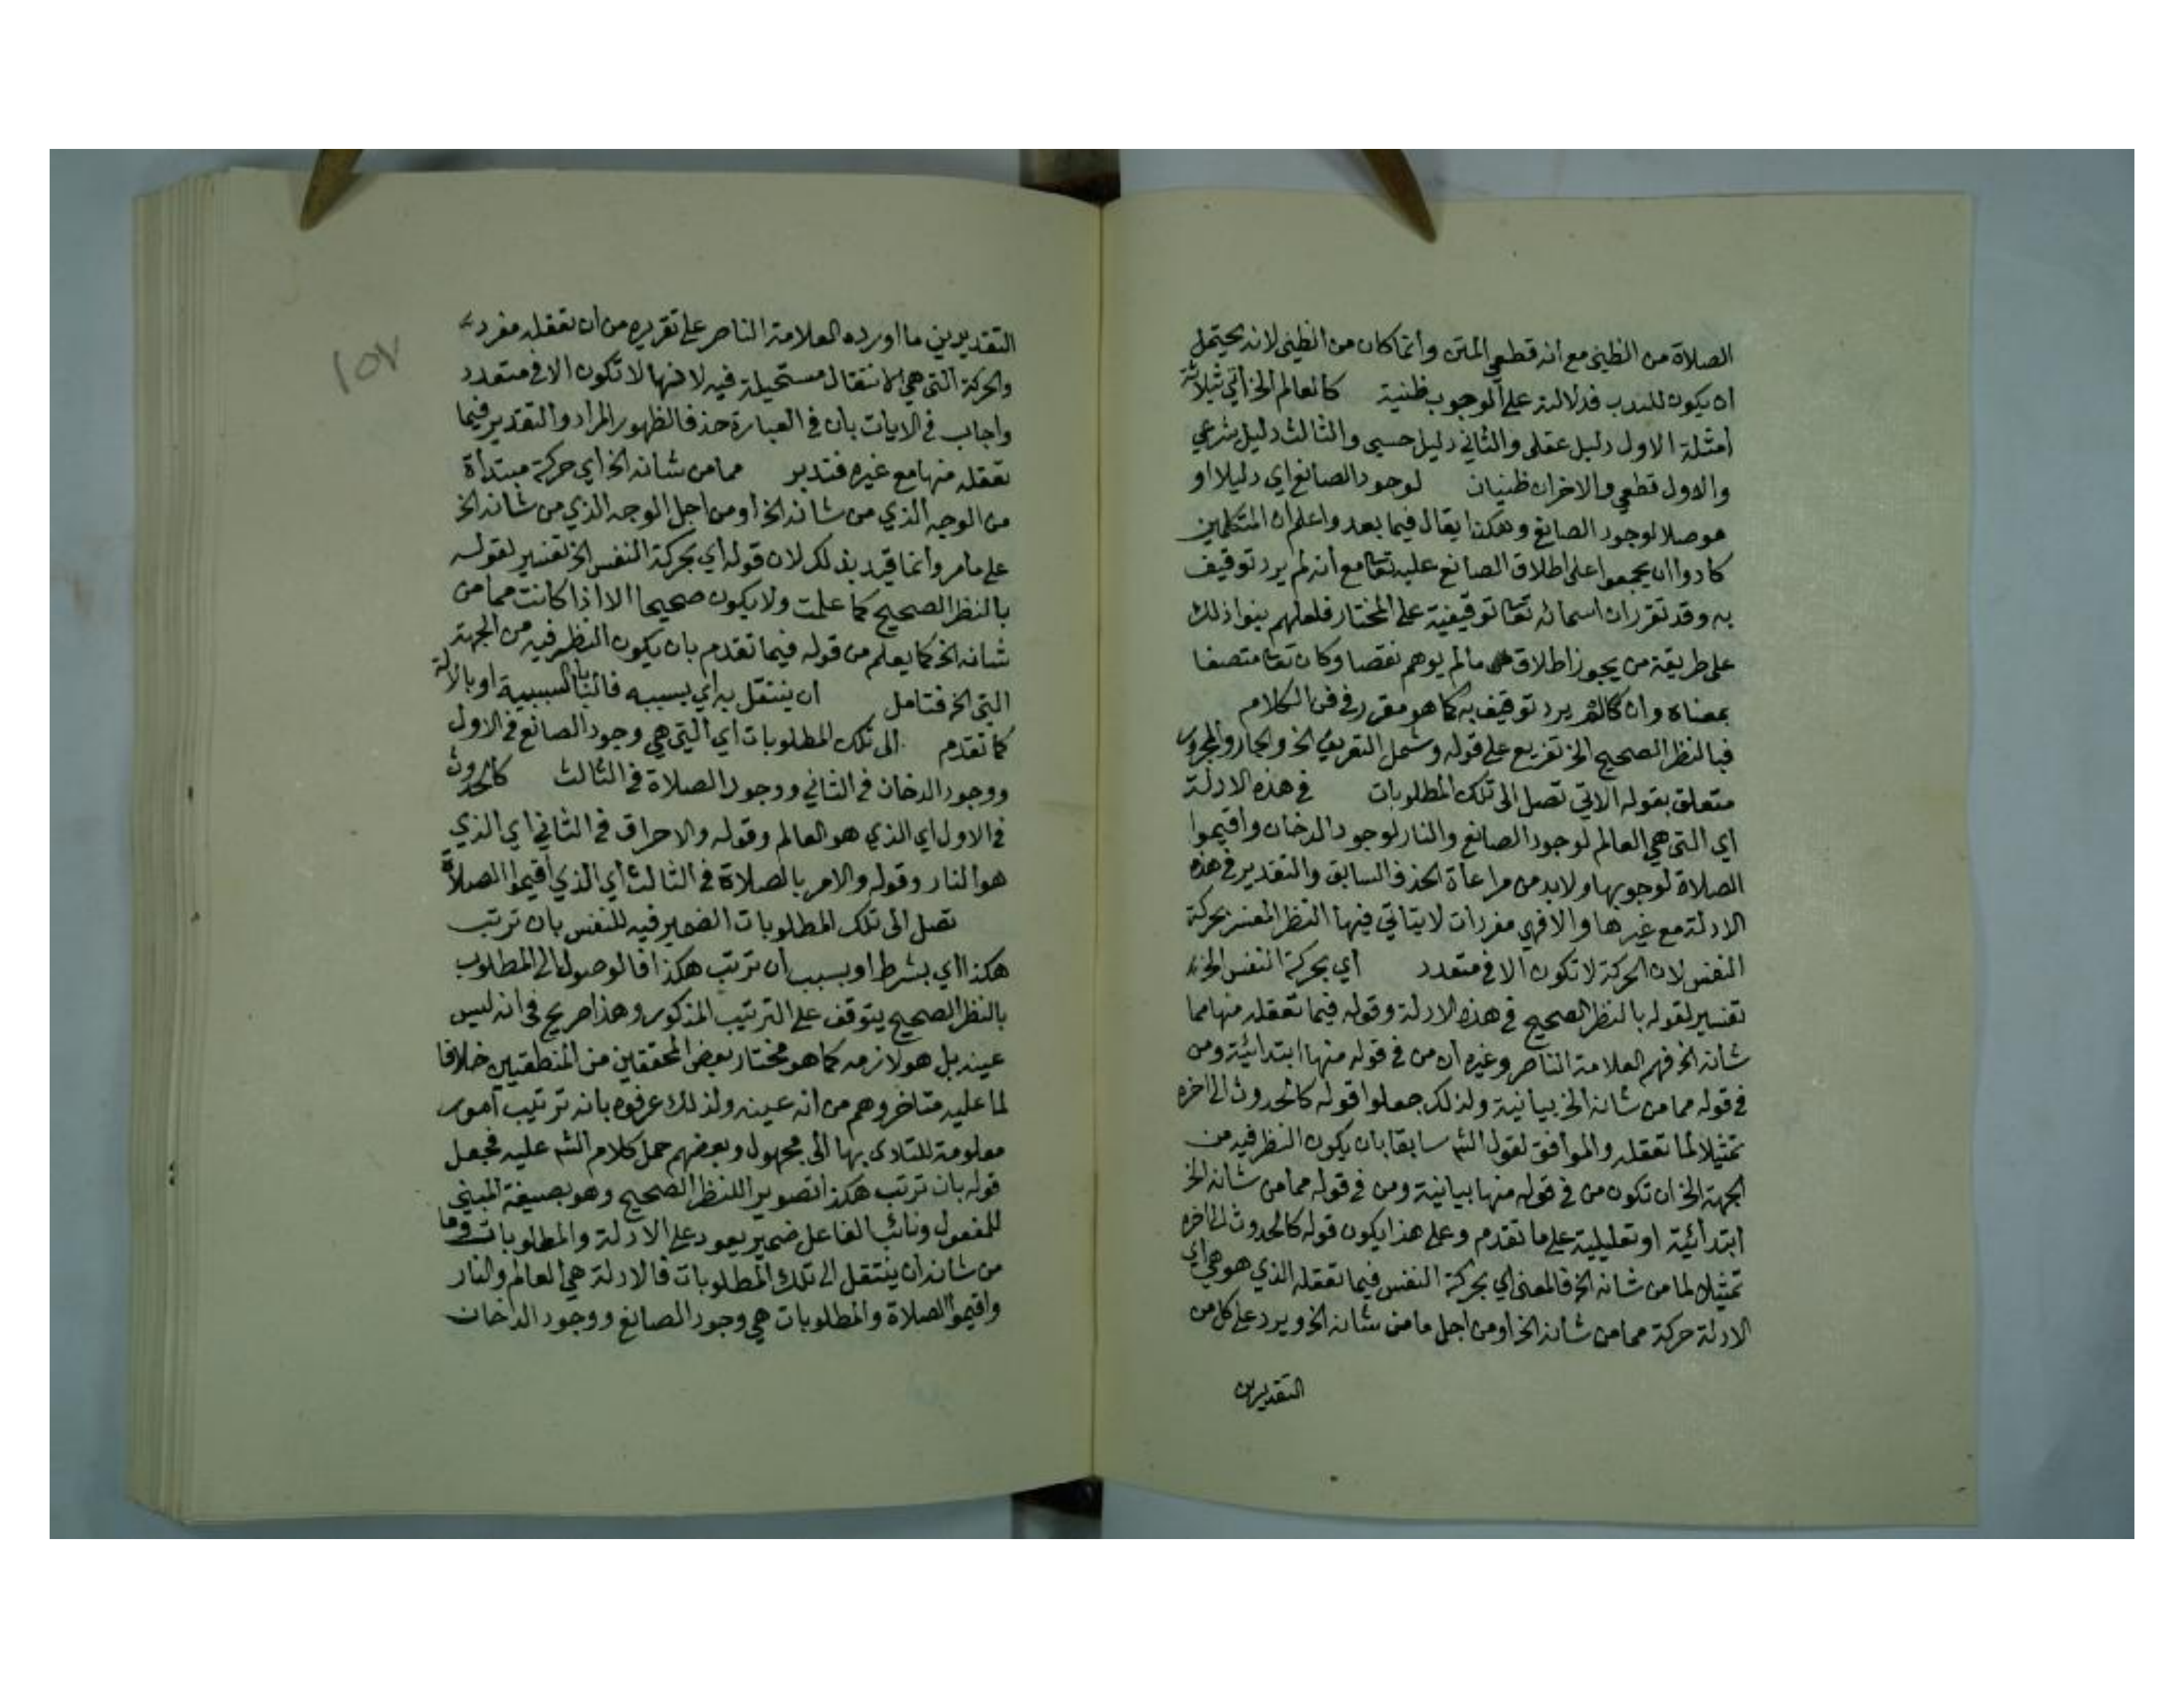 الصلاة من الظني مع أنه قطعي المتن وانما كان من الظني لانه يحتمل
ان يكون للندب فدلالته على الوجوب ظنية كالعالم الخ أتي بثلاثة
أمثلة الاول دليل عقلي والثاني دليل حسي والثالث دليل شرعي
والاول قطعي والاخران ظنيان لوجود الصانع اي دليلا او
موصلا لوجود الصانع وهكذا يقال فيما بعد واعلم ان المتكلمين
كادوا ان يجمعوا على اطلاق الصانع عليه تعا مع أنه لم يرد توقيف
به وقد تقرر ان اسمائه تعا توقيفية على المختار فلعلهم بنوا ذلك
على طريقة من يجوز اطلاق مالم يوهم نقصا وكان تعا متصفا
بمعناه وان كان لم يرد توقيف به كما هو مقرر في فن الكلام
فبالنظر الصحيح الخ تفريع على قوله وشمل التعريف الخ والجار والمجرور
متعلق بقوله الاتي تصل الى تلك المطلوبات في هذه الادلة
اي التي هي العالم لوجود الصانع والنار لوجود الدخان واقيموا
الصلاة لوجوبها ولابد من مراعاة الحذف السابق والتقدير في هذه
الادلة مع غيرها والا فهي مفردات لا يتاتي فيها النظر المفسر بحركة
النفس لان الحركة لا تكون الا في متعدد أي بحركة النفس الخ
تفسير لقوله بالنظر الصحيح في هذه الادلة وقوله فيما تعقله منها مما
شانه الخ فهم العلامة الناصر وغيره ان من في قوله منها ابتدائية ومن
في قوله مما من شانه الخ بيانية ولذلك جعلوا قوله كالحدوث الى اخره
تمثيلا لما تعقله والموافق لقول الشـ سابقا بان يكون النظر فيه من
الجهة الخ ان تكون من في قوله منها بيانية ومن في قوله مما من شانه الخ
ابتدائية او تعليلية على ما تقدم وعلى هذا يكون قوله كالحدوث الى اخره
تمثيلا لما من شانه الخ فالمعنى اي بحركة النفس فيما تعقله الذي هو هي اي
الادلة حركة مما من شانه الخ او من اجل ما من شانه الخ ويرد على كل من
التقديرين
١٥٧
التقديرين ما اورده العلامة الناصر على تقريره من ان تعقله مفرد
والحركة التي هي الانتقال مستحيلة فيه لانها لا تكون الا في متعدد
واجاب في الايات بان في العبارة حذفا لظهور المراد والتقدير فيما
تعقله منها مع غيره فتدبر مما من شانه الخ أي حركة مبتدأة
من الوجه الذي من شانه الخ أو من اجل الوجه الذي من شانه الخ
على ما مر وانما قيد بذلك لان قوله أي بحركة النفس الخ تفسير لقوله
بالنظر الصحيح كما علمت ولا يكون صحيحا الا اذا كانت مما من
شانه الخ كما يعلم من قوله فيما تقدم بان يكون النظر فيه من الجهة
التي الخ فتامل ان ينتقل به أي بسببه فالبا للسببية او بالالة
كما تقدم الى تلك المطلوبات اي التي هي وجود الصانع في الاول
ووجود الدخان في الثاني ووجود الصلاة في الثالث كالحدوث
في الاول اي الذي هو العالم وقوله والاحراق في الثاني اي الذي
هو النار وقوله والامر بالصلاة في الثالث أي الذي أقيموا الصلاة
تصل الى تلك المطلوبات الضمير فيه للنفس بان ترتب
هكذا اي بشرط او بسبب ان ترتب هكذا فالوصول الى المطلوب
بالنظر الصحيح يتوقف على الترتيب المذكور وهذا صريح في انه ليس
عينه بل هو لازمه كما هو مختار بعض المحققين من المنطقيين خلافا
لما عليه متاخروهم من انه عينه ولذلك عرفوه بانه ترتيب أمور
معلومة للتادي بها الى مجهول وبعضهم حمل كلام الشـ عليه فجعل
قوله بان ترتب هكذا تصويرا للنظر الصحيح وهو بصيغة المبني
للمفعول ونائب الفاعل ضمير يعود على الادلة والمطلوبات وما
من شانه ان ينتقل الى تلك المطلوبات فالادلة هي العالم والنار
واقيموا الصلاة والمطلوبات هي وجود الصانع ووجود الدخان